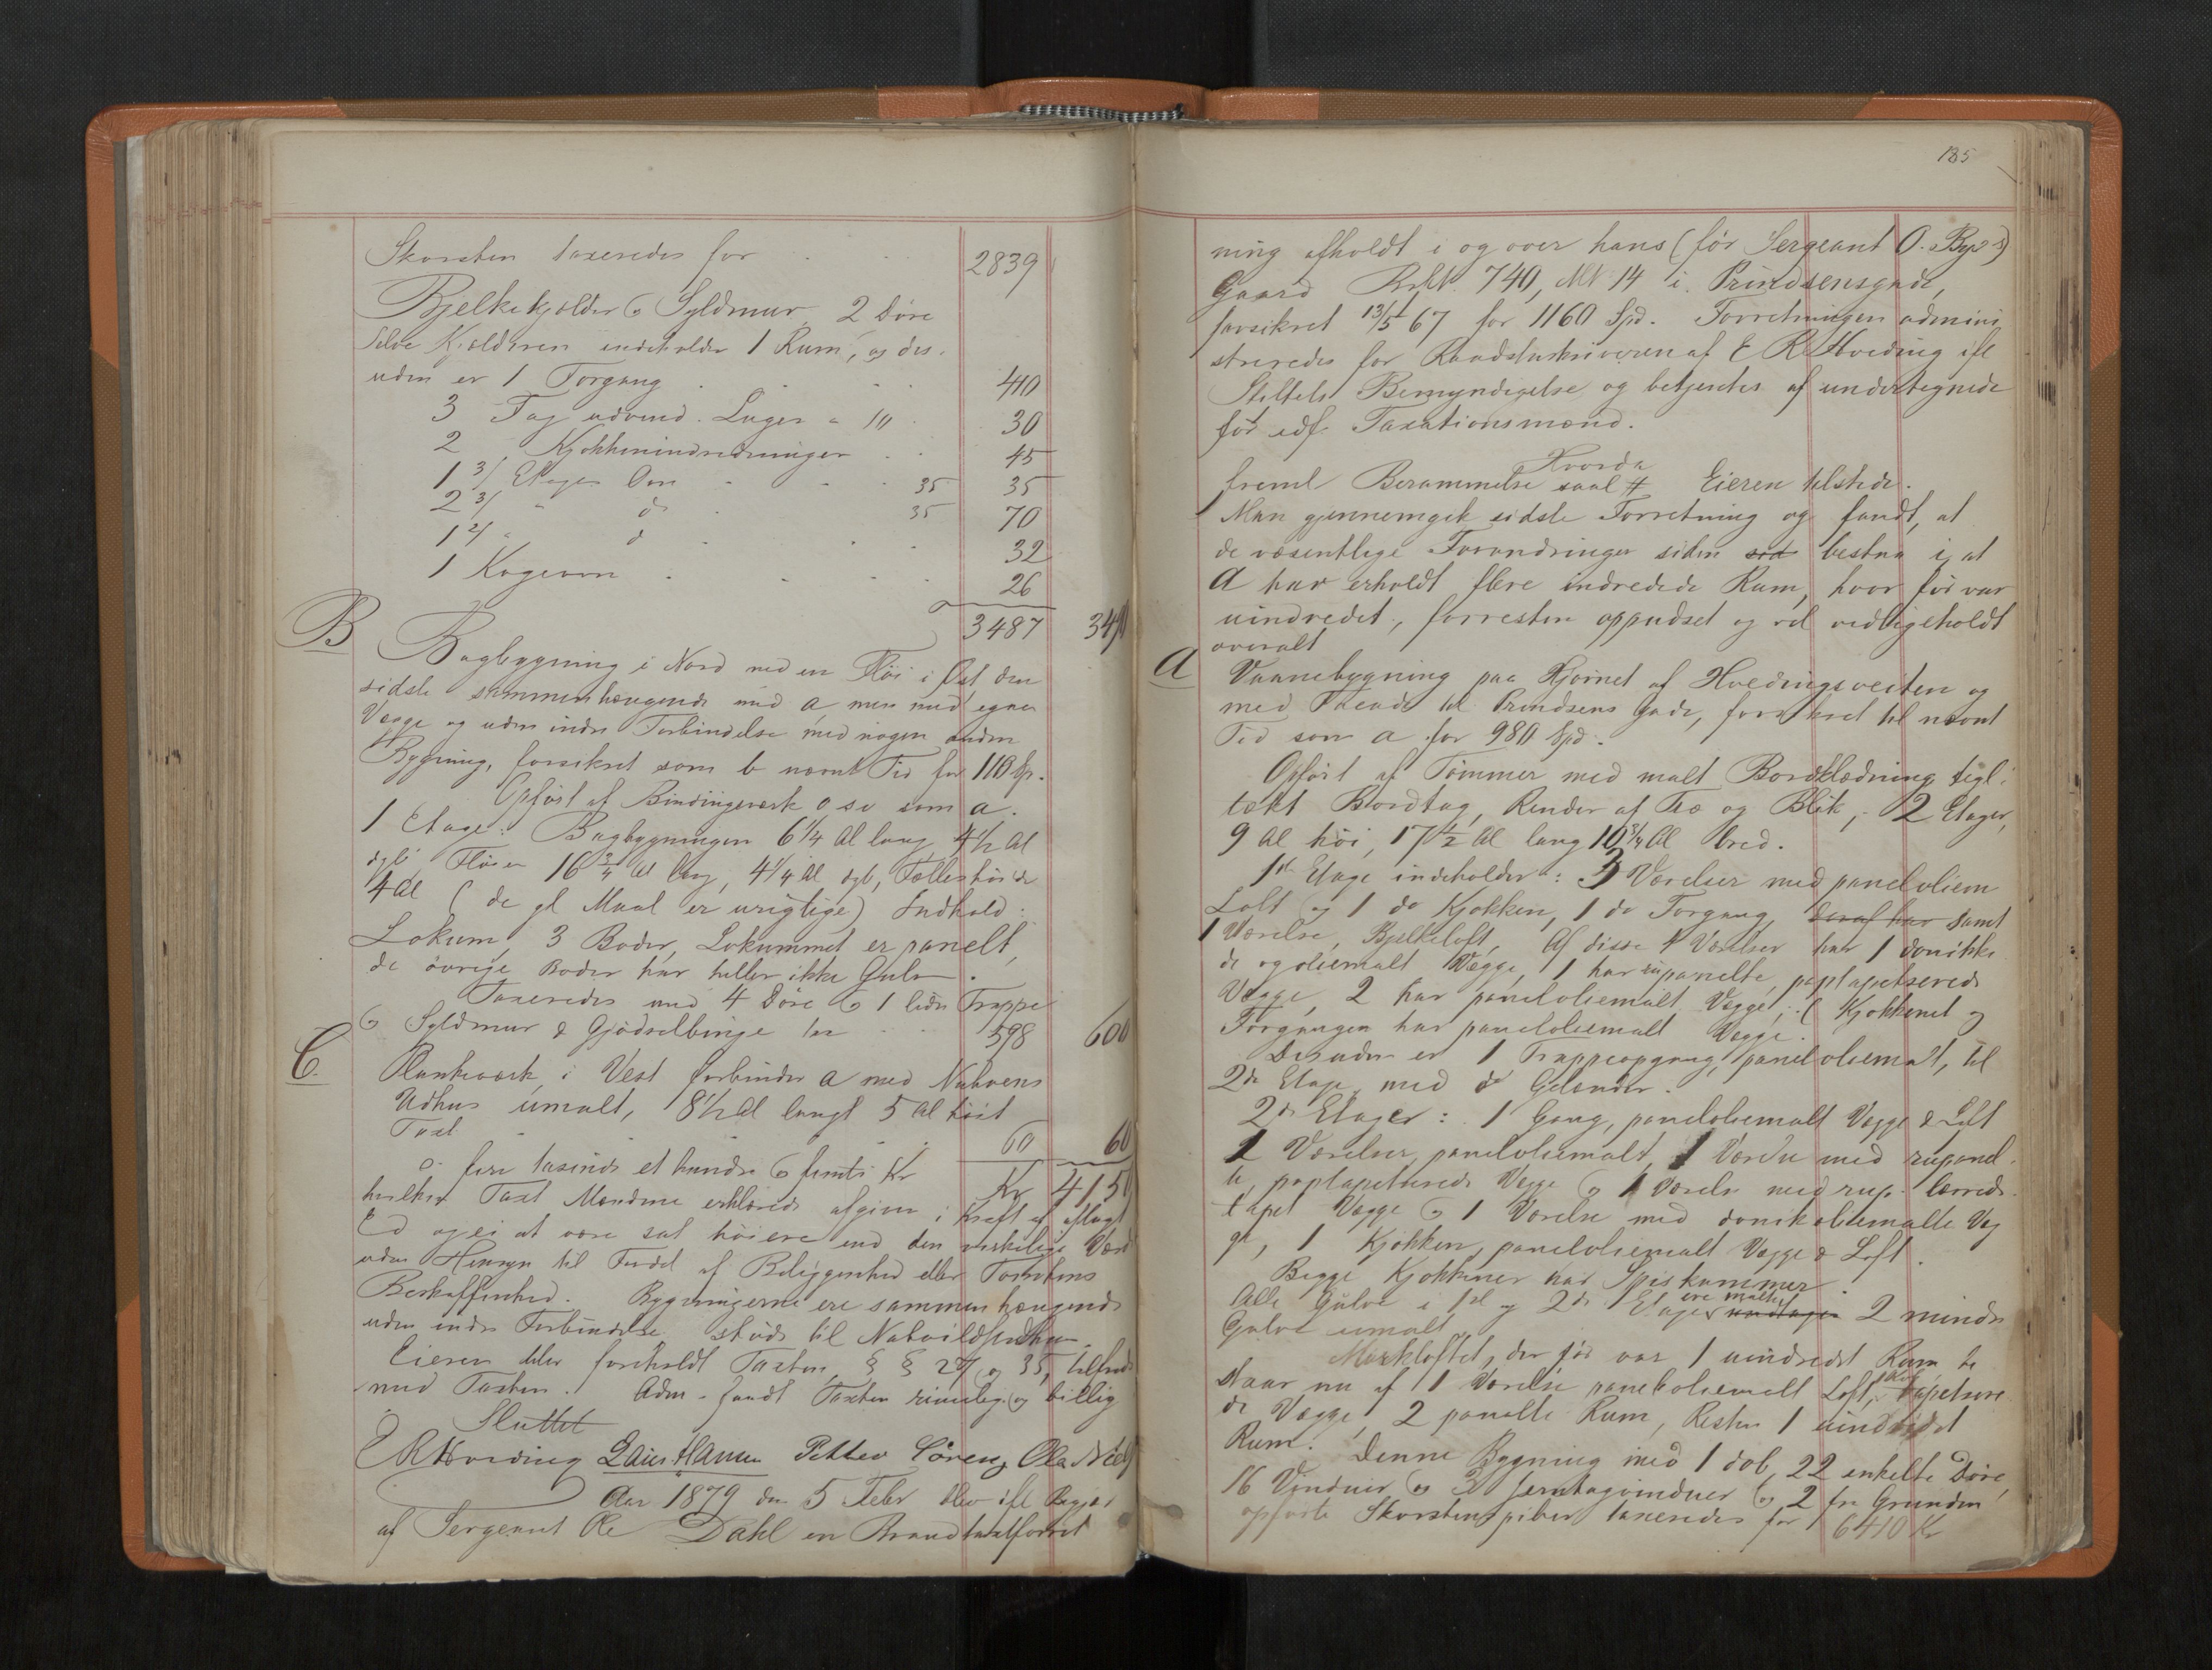 Skorsten taxeredes for 2839
Bjelkekjelder & Syldmur 2 Döre
Selve Kjelderen indeholder 1 Rum, og des-
uden er 1 Forgang 410
3 Fag udvend. Luger a 10 30
2 Kjøkkenindredninger 45
1 3/ Etages Ovn 35 35
2 3/ " do 35 70
1 2/ " d 32
1 Kogeovn 26
3487 349
B Bagbygning i Nord med en Flöi i Øst, den
sidste sammenhængende med A men med egne
Vægge og uden indre Forbindelse med nogen anden
Bygning, forsikret som b nævnt Tid for 110 Sp.
Opført af Bindingsværk o s v som A.
1 Etage: Bagbygningen 6 1/4 Al lang, 4 1/2 Al
dyb, Flöien 16 3/4 Al lang, 4 1/4 Al dyb, Fælleshöide
4 Al (de gl Maal er urigtige) Indhold:
Lokum, 3 Boder, Lokummet er panelt,
de övrige Boder har heller ikke Gulv.
Taxeredes med 4 Döre & 1 liden Trappe
& Syldmur & Gjödselbinge for 598 600
C. Plankeværk i Vest forbinder A med Naboens
Udhus umalt, 8 1/2 Al langt 5 Al höit
Taxt 60 60
fire tusinde et hundre & femti Kr Kr 4150
hvilken Taxt Mændene erklærede afgiven i Kraft af aflagt
Ed og ei at være sat höiere end den virkelige Værd
uden Hensyn til Fordel af Beliggenhed eller Tomtens
Beskaffenhed. Bygningerne ere sammenhængende
uden indre Forbindelse stöde til Nabo
Eieren blev foreholdt Taxten, § § 27 og 35, tilfreds
med Taxten. Adm. fandt Taxten rimelig og billig
Sluttet
E R Hveding Laurs Hansen Petter Sörens Ola Niels
Aar 1879 den 5 Febr blev ifl Begjær
af Sergeant Ole Dahl en Brandtaxtforret
185
ning afholdt i og over hans (för Sergeant O. Byes)
Gaard BrNr. 740, MNr 14 i Prindsensgade,
forsikret 13/5 67 for 1160 Spd. Forretningen admini
streredes for Raadstueskriveren af E R Hveding ifl
Stiftets Bemyndigelse og betjentes af undertegnede
för edf. Taxationsmænd.
Hvorda
freml Berammelse saal # Eieren tilstede.
Man gjennemgik sidste Forretning og fandt, at
de væsentlige Forandringer siden sid bestaa i, at
A har erholdt flere indredede Rum, hvor för var
uindredet, forresten oppudset og vel vedligeholdt
overalt
A Vaanebygning paa Hjørnet af Hvedingsveiten og
med Facade til Prindsens Gade, forsikret til nævnt
Tid som a for 980 Spd.
Opfört af Tømmer med malt Bordklædning, tegl-
tækt Bordtag, Render af Træ og Blik, 2 Etager,
9 Al höi, 17 1/2 Al lang 10 3/4 Al bred.
1ste Etage indeholder: 3 Værelser med paneloliem
Loft og 1 do Kjøkken, 1 do Forgang, deraf har samt
1 Værelse, Bjelkeloft, Af disse 4 Værelser har 1 donikke
de og oliemalt Vægge, 1 har rupanelte, paptapetserede
Vægge, 2 har paneloliemalt Vægge; (Kjøkkenet og
Forgangen har paneloliemalt Vægge.
Desuden er 1 Trappeopgang, paneloliemalt, til
2den Etage, med do Gelænder.
2den Etager: 1 Gang, paneloliemalt Vægge & Loft
1 Værelser, paneloliemalt, 1 Værelse med rupanel
te, paptapetserede Vægge & 1 Værelse med rup. lærreds
tapet Vægge & 1 Værelse med donikoliemalte Væg
ge, 1 Kjøkken, paneloliemalt Vægge & Loft.
Begge Kjøkkener har Spiskammer.
ere malte
Alle Gulve i 1ste og 2den Etager undtagen 2 mindre
Gulve umalt.
Mørkloftet, der för var 1 uindredet Rum, be
staar nu af 1 Værelse paneloliemalt Loft, tapetsere
de Vægge, 2 panelte Rum, Resten 1 uindredet
Rum. Denne Bygning med 1 dob, 22 enkelte Döre,
16 Vinduer & 3 Jerntagvinduer & 2 fra Grunden
opførte Skorstenspiber taxeredes for 6410 Kr